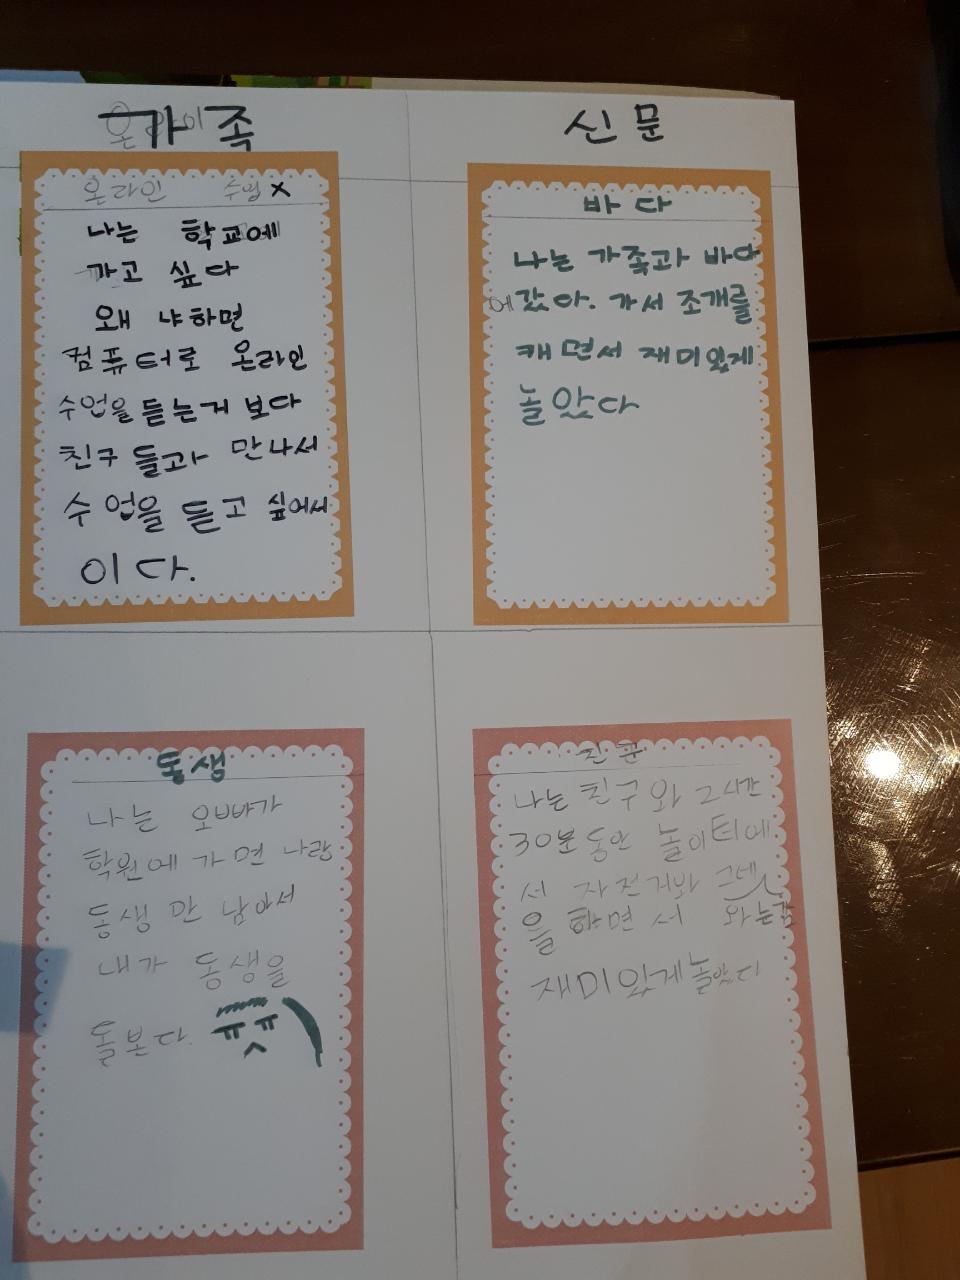 가족 신문
온라인 수업 X
나는 학교에
가고 싶다
왜 냐하면
컴퓨터로 온라인
수업을 듣는거 보다
친구 들과 만나서
수업을 듣고 싶어서
이다.
바다
나는 가족과 바다
에 갔다. 가서 조개를
캐면서 재미있게
놀았다
동생
나는 오빠가
학원에 가면 나랑
동생 만 남아서
내가 동생을
돌본다. ㅠㅠ
친구
나는 친구와 2시간
30분 동안 놀이터에
서 자전거와 그네
을 하면서
재미있게 놀았다